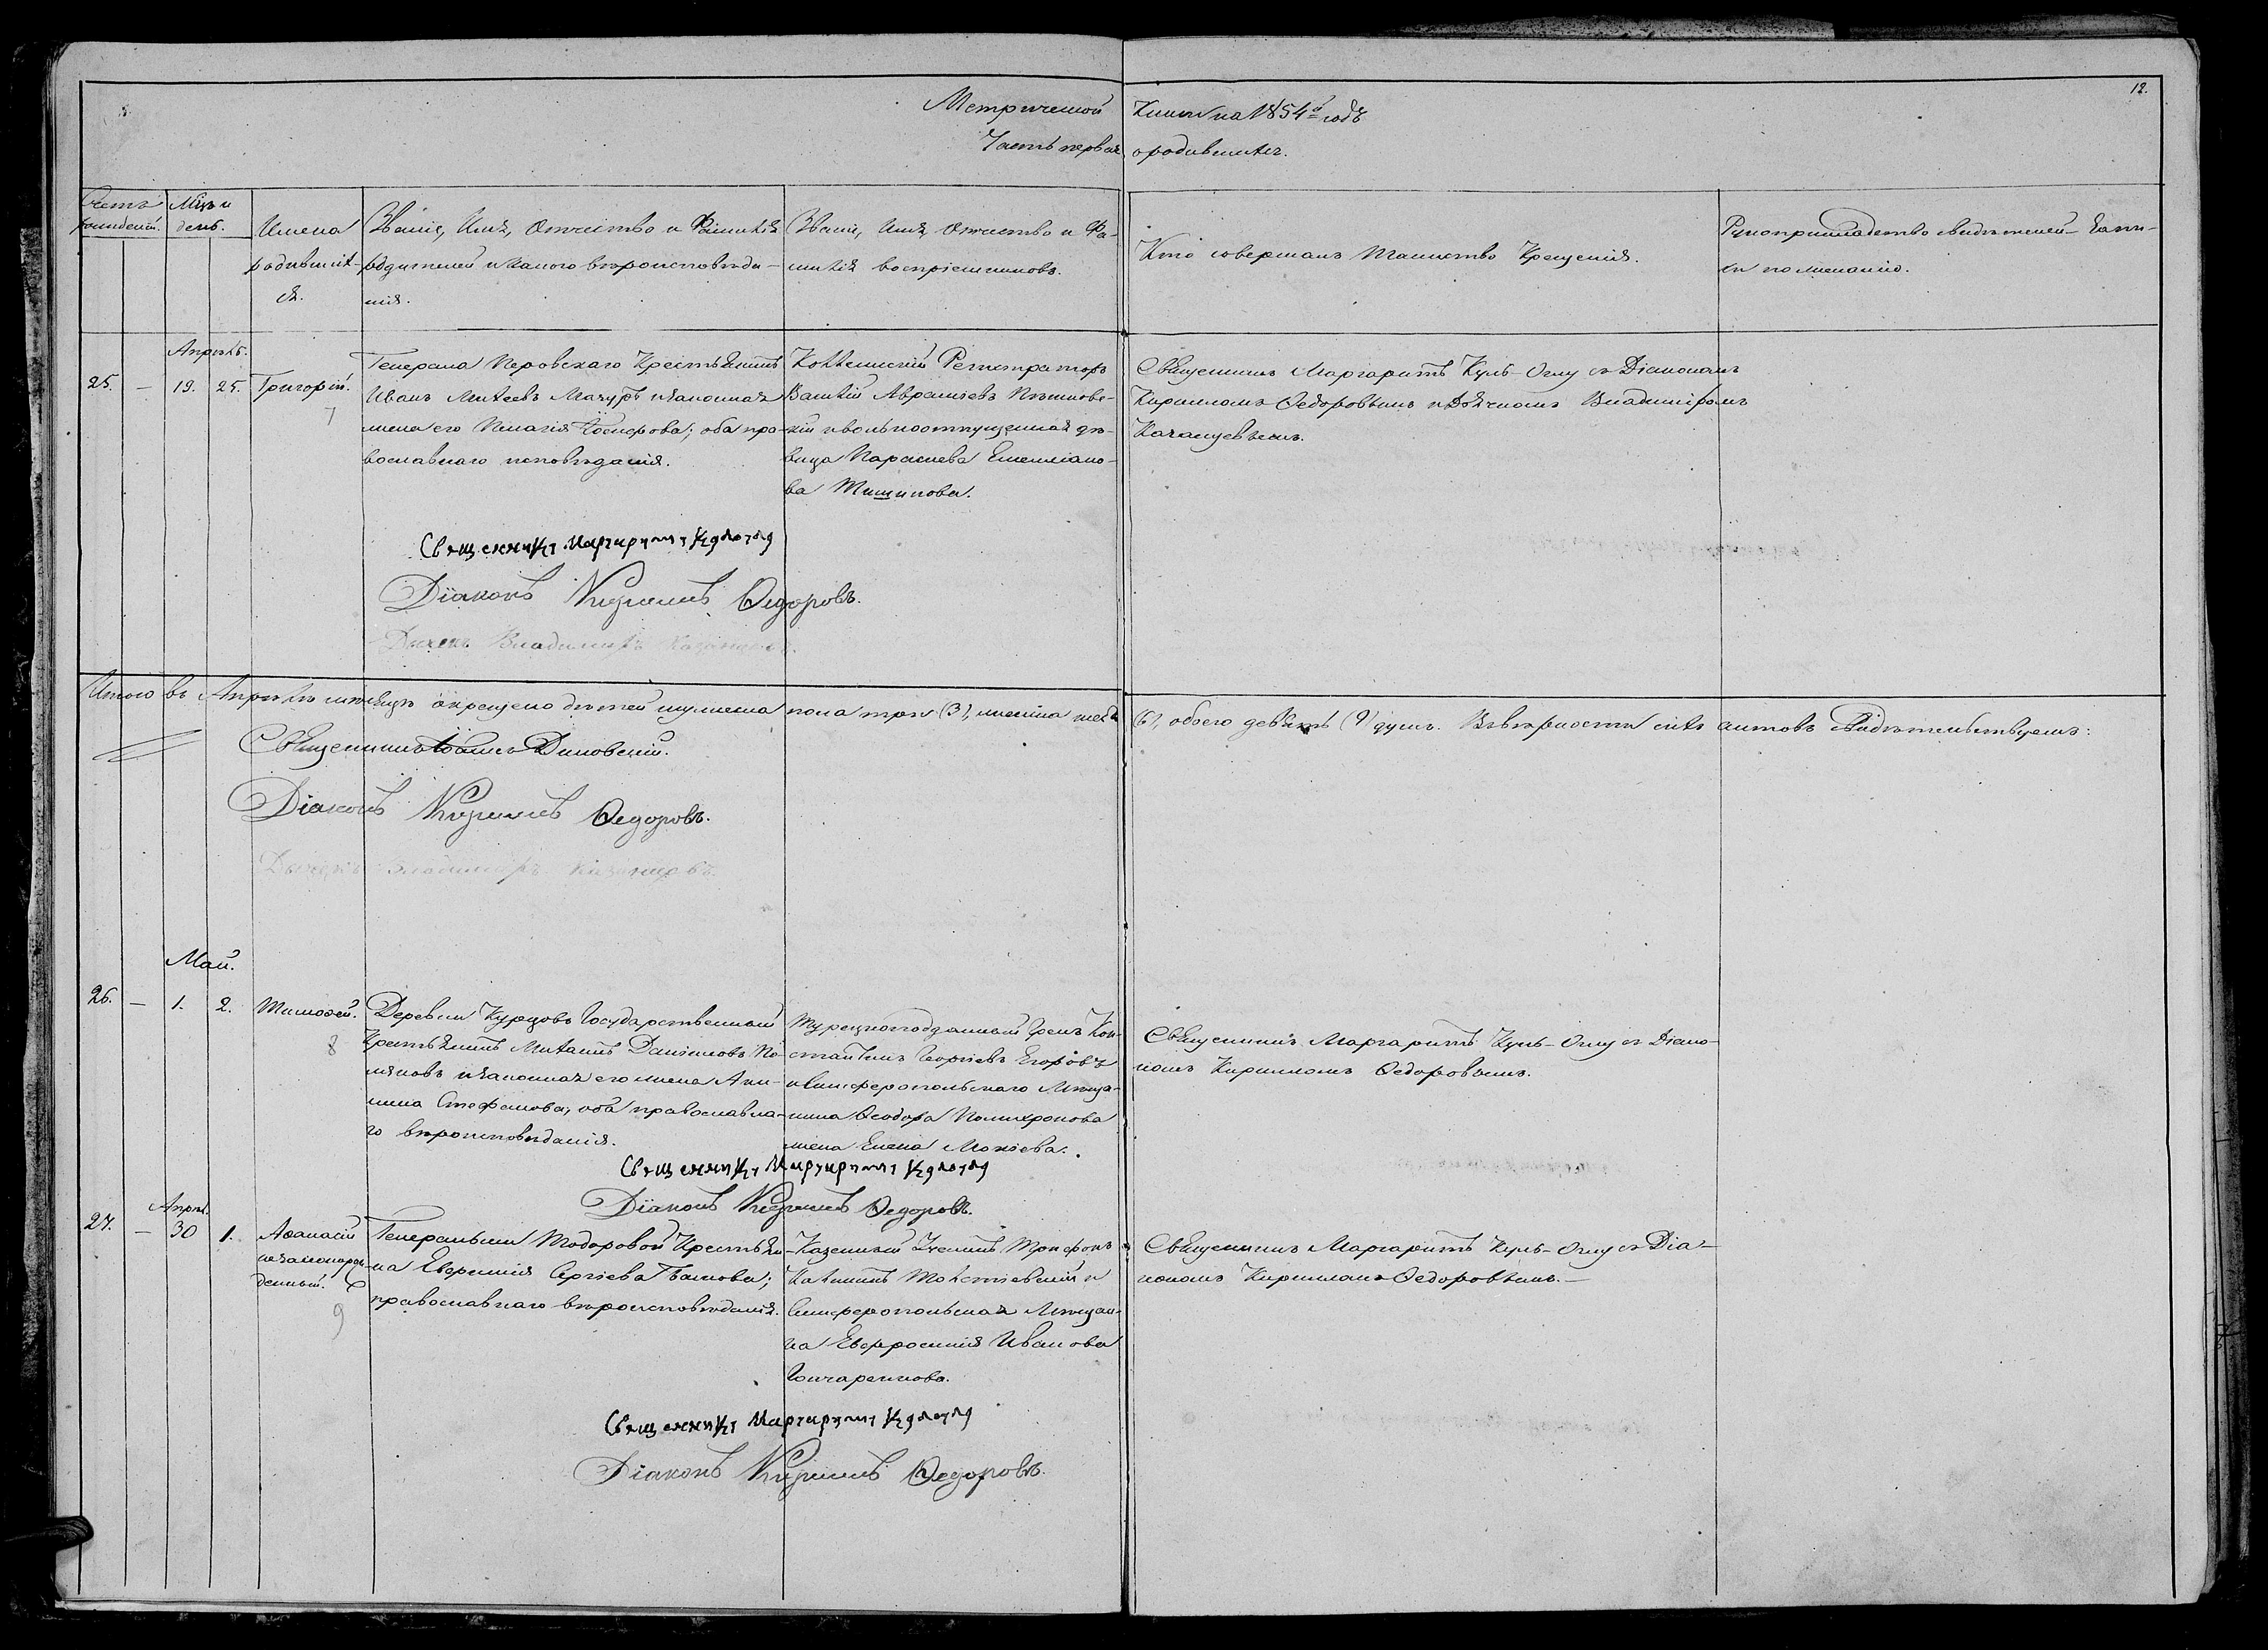 12.
Метрической Книги на 1854й годъ
Часть первая о родившихся.
Счетъ рожденій.
Мѣц. и день.
Имена родившихся.
Званіе, Имя, Отчество и Фамилія
родителей и какого вѣроисповѣда-
нія.
Званіе, Имя, Отчество и Фа-
милія воспріемниковъ.
Кто совершалъ Таинство Крещенія.
Рукоприкладство свидѣтелей
по желанію.
Апрѣль.
25. — 19. 25. Григорій.
7
Генерала Перовскаго Крестьянинъ
Иванъ Михеевъ Мазуръ и законная
жена его Пелагія Іосифова; оба пра-
вославнаго исповѣданія.
Коллежскій Регистраторъ
Василій Авраміевъ
и вольноотпущенная дѣ-
вица Параскева Емеліано-
ва Тишинова.
Священникъ Маргаритъ Куль-Оглу съ Діакономъ
Кирилломъ Ѳедоровымъ и Дьячкомъ Владиміромъ
Казанцевымъ.
Священникъ Маргаритъ Кулоглу
Діаконъ Кириллъ Ѳедоровъ.
Дьячекъ Владиміръ Казанцевъ.
Итого въ Апрѣлѣ мѣсяцѣ окрещено дѣтей мужеска пола три (3), женска шесть (6), обоего девять (9) душъ. Въ вѣрности сихъ актовъ свидѣтельствуемъ:
Священникъ Іоаннъ Диковскій.
Діаконъ Кириллъ Ѳедоровъ.
Дьячекъ Владиміръ Казанцевъ.
Май.
26. — 1. 2. Тимоѳей.
8
Деревни Курцовъ Государственный
Крестьянинъ Михаилъ Даніиловъ По-
ляковъ и законная его жена Аки-
лина Стефанова, оба православна-
го вѣроисповѣданія.
Турецкоподданный Грекъ Кон-
стантинъ Георгіевъ Егоровъ
и Симферопольскаго Мѣща-
нина Ѳеодора Полихронова
жена Елена Мокіева.
Священникъ Маргаритъ Куль-Оглу съ Діако-
номъ Кирилломъ Ѳедоровымъ.
Священникъ Маргаритъ Кулоглу
Діаконъ Кириллъ Ѳедоровъ.
Апрѣл.
27. — 30 1. Аѳанасій
незаконорож-
денный.
9
Генеральши Тодоровой Крестьян-
ка Евфимія Сергіева
православнаго вѣроисповѣданія.
Казенный Трифонъ
и
Симферопольская Мѣщан-
ка Евфросинія Иванова
Гончаренкова.
Священникъ Маргаритъ Куль-Оглу съ Діа-
кономъ Кирилломъ Ѳедоровымъ. —
Священникъ Маргаритъ Кулоглу
Діаконъ Кириллъ Ѳедоровъ.